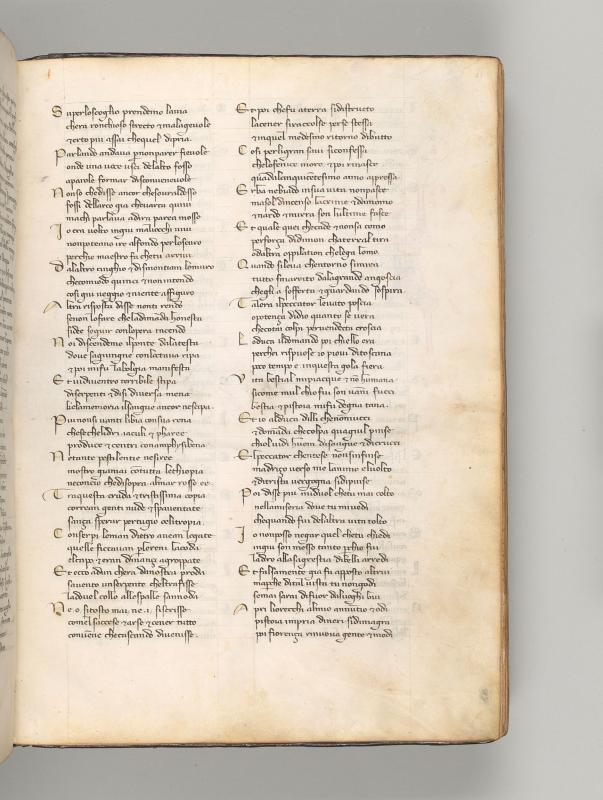 Superloscoglio prendemo lauia
chera ronchioso strecto & malageuole
& erto piu assai chequel dipria.
Parlando andaua pnonparer fieuole
onde una uoce usci delalto fosso
aparole formar disconueneuole
Nonso chedisse ancor chesoualdosso
fossi dellarco gia cheuarcu quiui
machi parlaua adira parea mosso
Io era uolto ingiu malocchi uiui
nonpoteano ire alfondo perloscuro
perchio maestro fa chetu arriui
Dalaltro cinghio & dismontiam lomuro
checomiodo quinci & nonintendo
cosi giu ueggio & niente affiguro
Altra risposta disse nonti rendo
senon lofare cheladimada honesta
side seguir conlopera tacendo
Noi discendemo ilponte dalatesta
doue sagiungne conlectaua ripa
& poi mifu labolgia manifesta
Et uidiuentro terribile stipa
diserpenti & disi diuersa mena
chelamemoria ilsangue ancor mescipa
Piu nonsi uanti libia consua rena
chesechelidri iaculi & pharee
produce & centri conamphysibena
Ne tante pestilentie nesiree
mostro giamai contutta lethiopia
neconcio chedisopra almar rosse ee
Tra questa cruda & tristissima copia
correan genti nude & spauentate
sança sperar pertugio oelitropia
Con serpi leman dietro auean legate
quelle ficcauan plereni lacoda
elcapo & eran dinanzi agroppate
Et ecco adun chera danostra proda
sauento unserpente cheltrafisse
ladoue lcollo allespalle sannoda
Ne .o. sitosto mai ne .i. sifcrisse
comel saccese & arse & cener tutto
conuene checascando diuenisse.
Et poi chefu aterra sidistructo
lacener siraccolse perse stessa
& inquel medesmo ritorno dibutto
Cosi perligran saui siconfessa
chelafenice more & poi rinasce
quadalcinquecentesimo anno appressa
Erba nebiado insua uita nonpasce
masol dincenso lacrime & damomo
& nardo & mirra son lultime fasce
Et quale quei checade & nonsa como
perforça didimon chaterral tira
odaltra oppilation chelega lomo
Quando sileua chentorno simira
tutto smarrito dalagrande angoscia
chegli a sofferta & guardando sospira
Talera ilpeccator leuato poscia
opotença didio quanto se uera
checotai colpi peruendeta croscia
Loduca ildomando poi chiello era
perchei rispuose io pioui ditoscana
poco tempo e inquesta gola fiera
Vita bestial mipiacque & no humana
sicome mul chio fui son uanni fucci
bestia & pistoia mifu degna tana.
Et io alduca dilli chenonmucci
& domada checolpa quagiul pinse
chiol uidi huom disangue & dicrucci
Elpeccator chentese nonsinfinse
madriçço uerso me lanimo eluolto
& ditrista uergogna sidipinse
Poi disse piu miduol chetu mai colto
nellamiseria doue tu miuedi
chequando fui delaltra uita tolto
Io nonposso negar quel chetu chiedi
ingiu son messo tanto pchio fui
ladro allasagrestia dibelli arredi
Et falsamente gia fu apposto altrui
maperche dital uista tu nongodi
semai sarai difuor dalughi bui
Apri liorecchi almio annutio & odi
pistoia impria dineri sidimagra
poi fiorenza rinuoua gente & modi